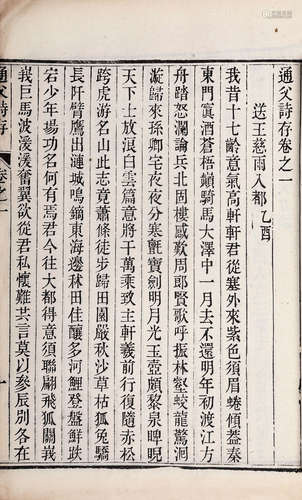 通父詩存卷之一
送王慈雨入都 乙酉
我昔十七齡意氣高軒軒君從塞外來紫色須眉蜷傾蓋秦
東門寘酒蒼梧巔騎馬大澤中一月去不還明年初渡江方
舟踏怒瀾論兵北固樓感歎周郎賢歌呼振林壑蛟龍驚洄
漩歸來孫卿宅夜夜分寒氈寶劍明月光玉壺頗黎泉睥睨
天下士放情白雲篇意將千萬乘致主軒羲前行復隨赤松
跨虎游名山此志竟蕭條徒步歸田園嚴秋沙草枯狐兔驕
長阡臂鷹出漣城鳴鏑東海邊林田佳釀多河鯉登盤鮮跌
宕少年場功名何有焉君今往大都得意須聯翩飛狐關峩
我巨馬波湲湲奮翼欲從君私懷難具言莫以參辰別各在
通父詩存
卷之一
一